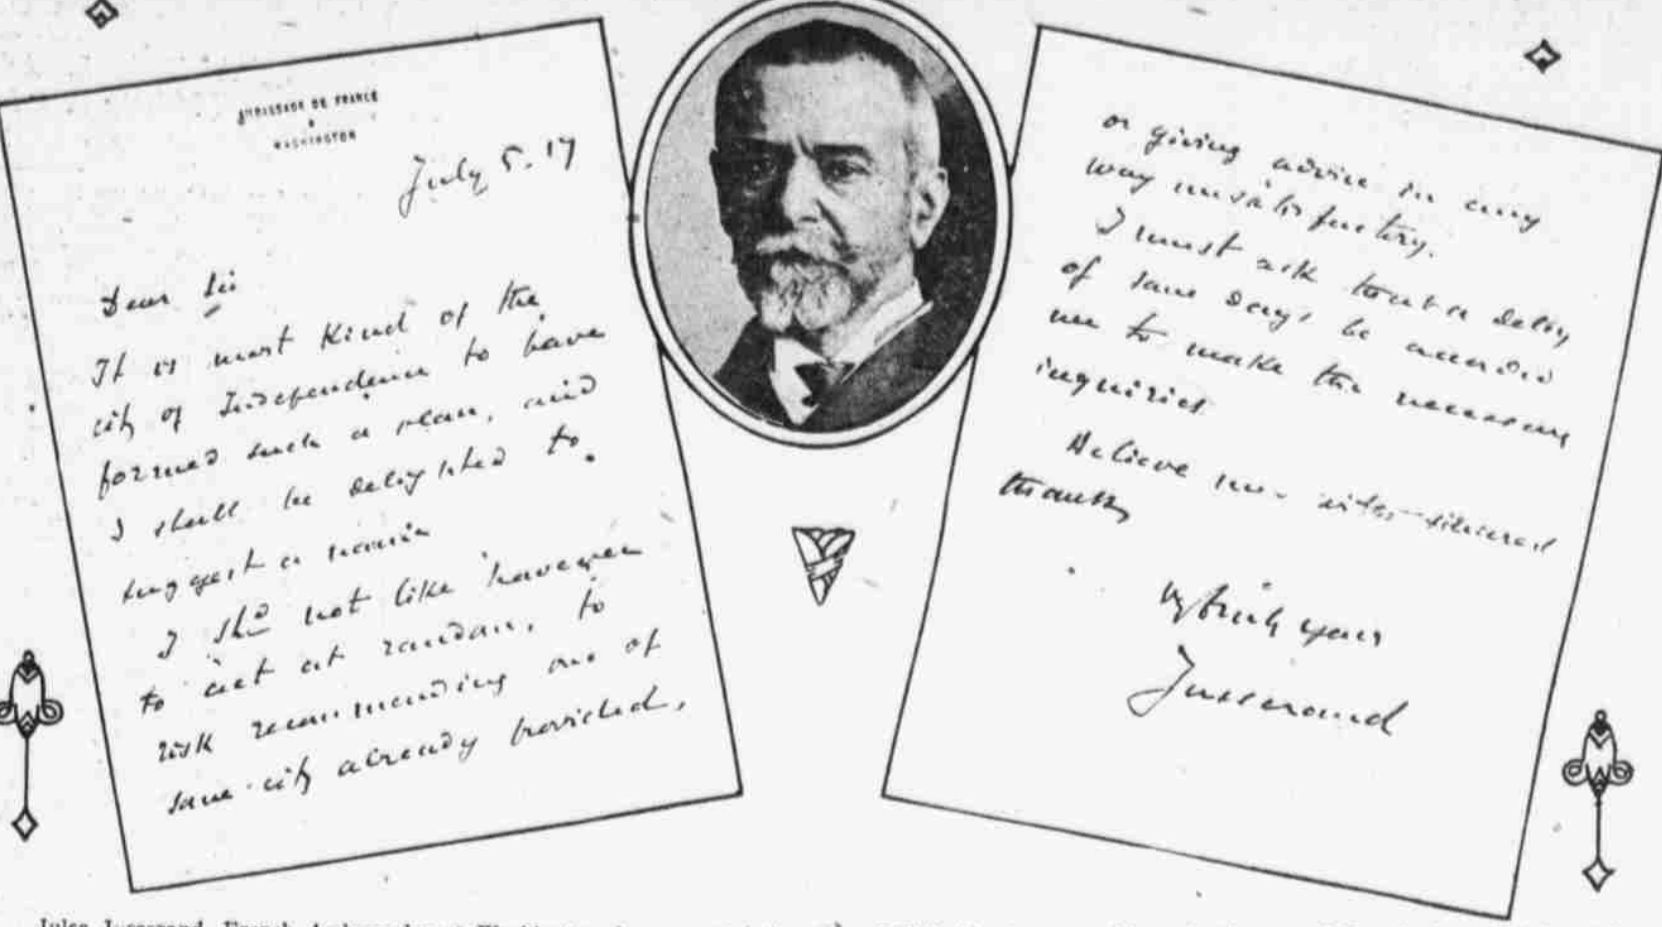 AMBASSADE DE FRANCE
A
WASHINGTON
July 5. 17
Dear Sir
It is most kind of the
city of Independence to have
formed such a plan, and
I shall be delighted to
suggest a name
I shd not like however
to act at random, to
risk recommending one of
some city already provided,
or giving advice in any
way unsatisfactory.
I must ask that a delay
of some days be accorded
me to make the necessary
inquiries
Believe me with sincerest
thanks
yours
Jusserand
Jules Jusserand, French Ambassador